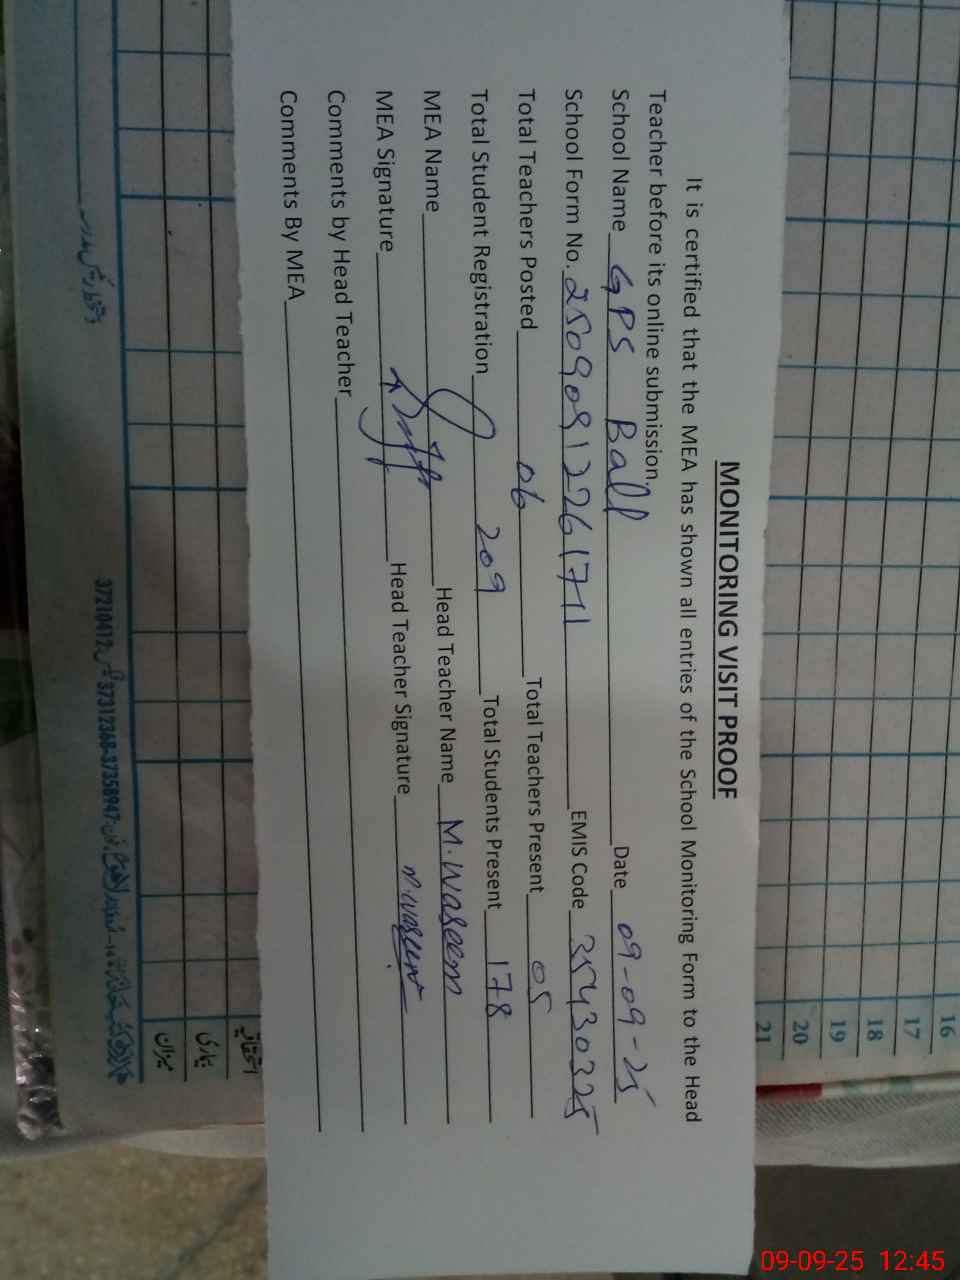 MONITORING VISIT PROOF
It is certified that the MEA has shown all entries of the School Monitoring Form to the Head
Teacher before its online submission.
School Name GPS Ball Date 09-09-25
School Form No. 2509091226171 EMIS Code 35430325
Total Teachers Posted 06 Total Teachers Present 05
Total Student Registration 209 Total Students Present 178
MEA Name Head Teacher Name M. Waseem
MEA Signature Head Teacher Signature M. Waseem
Comments by Head Teacher
Comments By MEA
16
17
18
19
20
21
بیماری
میزان
37210412 37312368-37358947
09-09-25 12:45